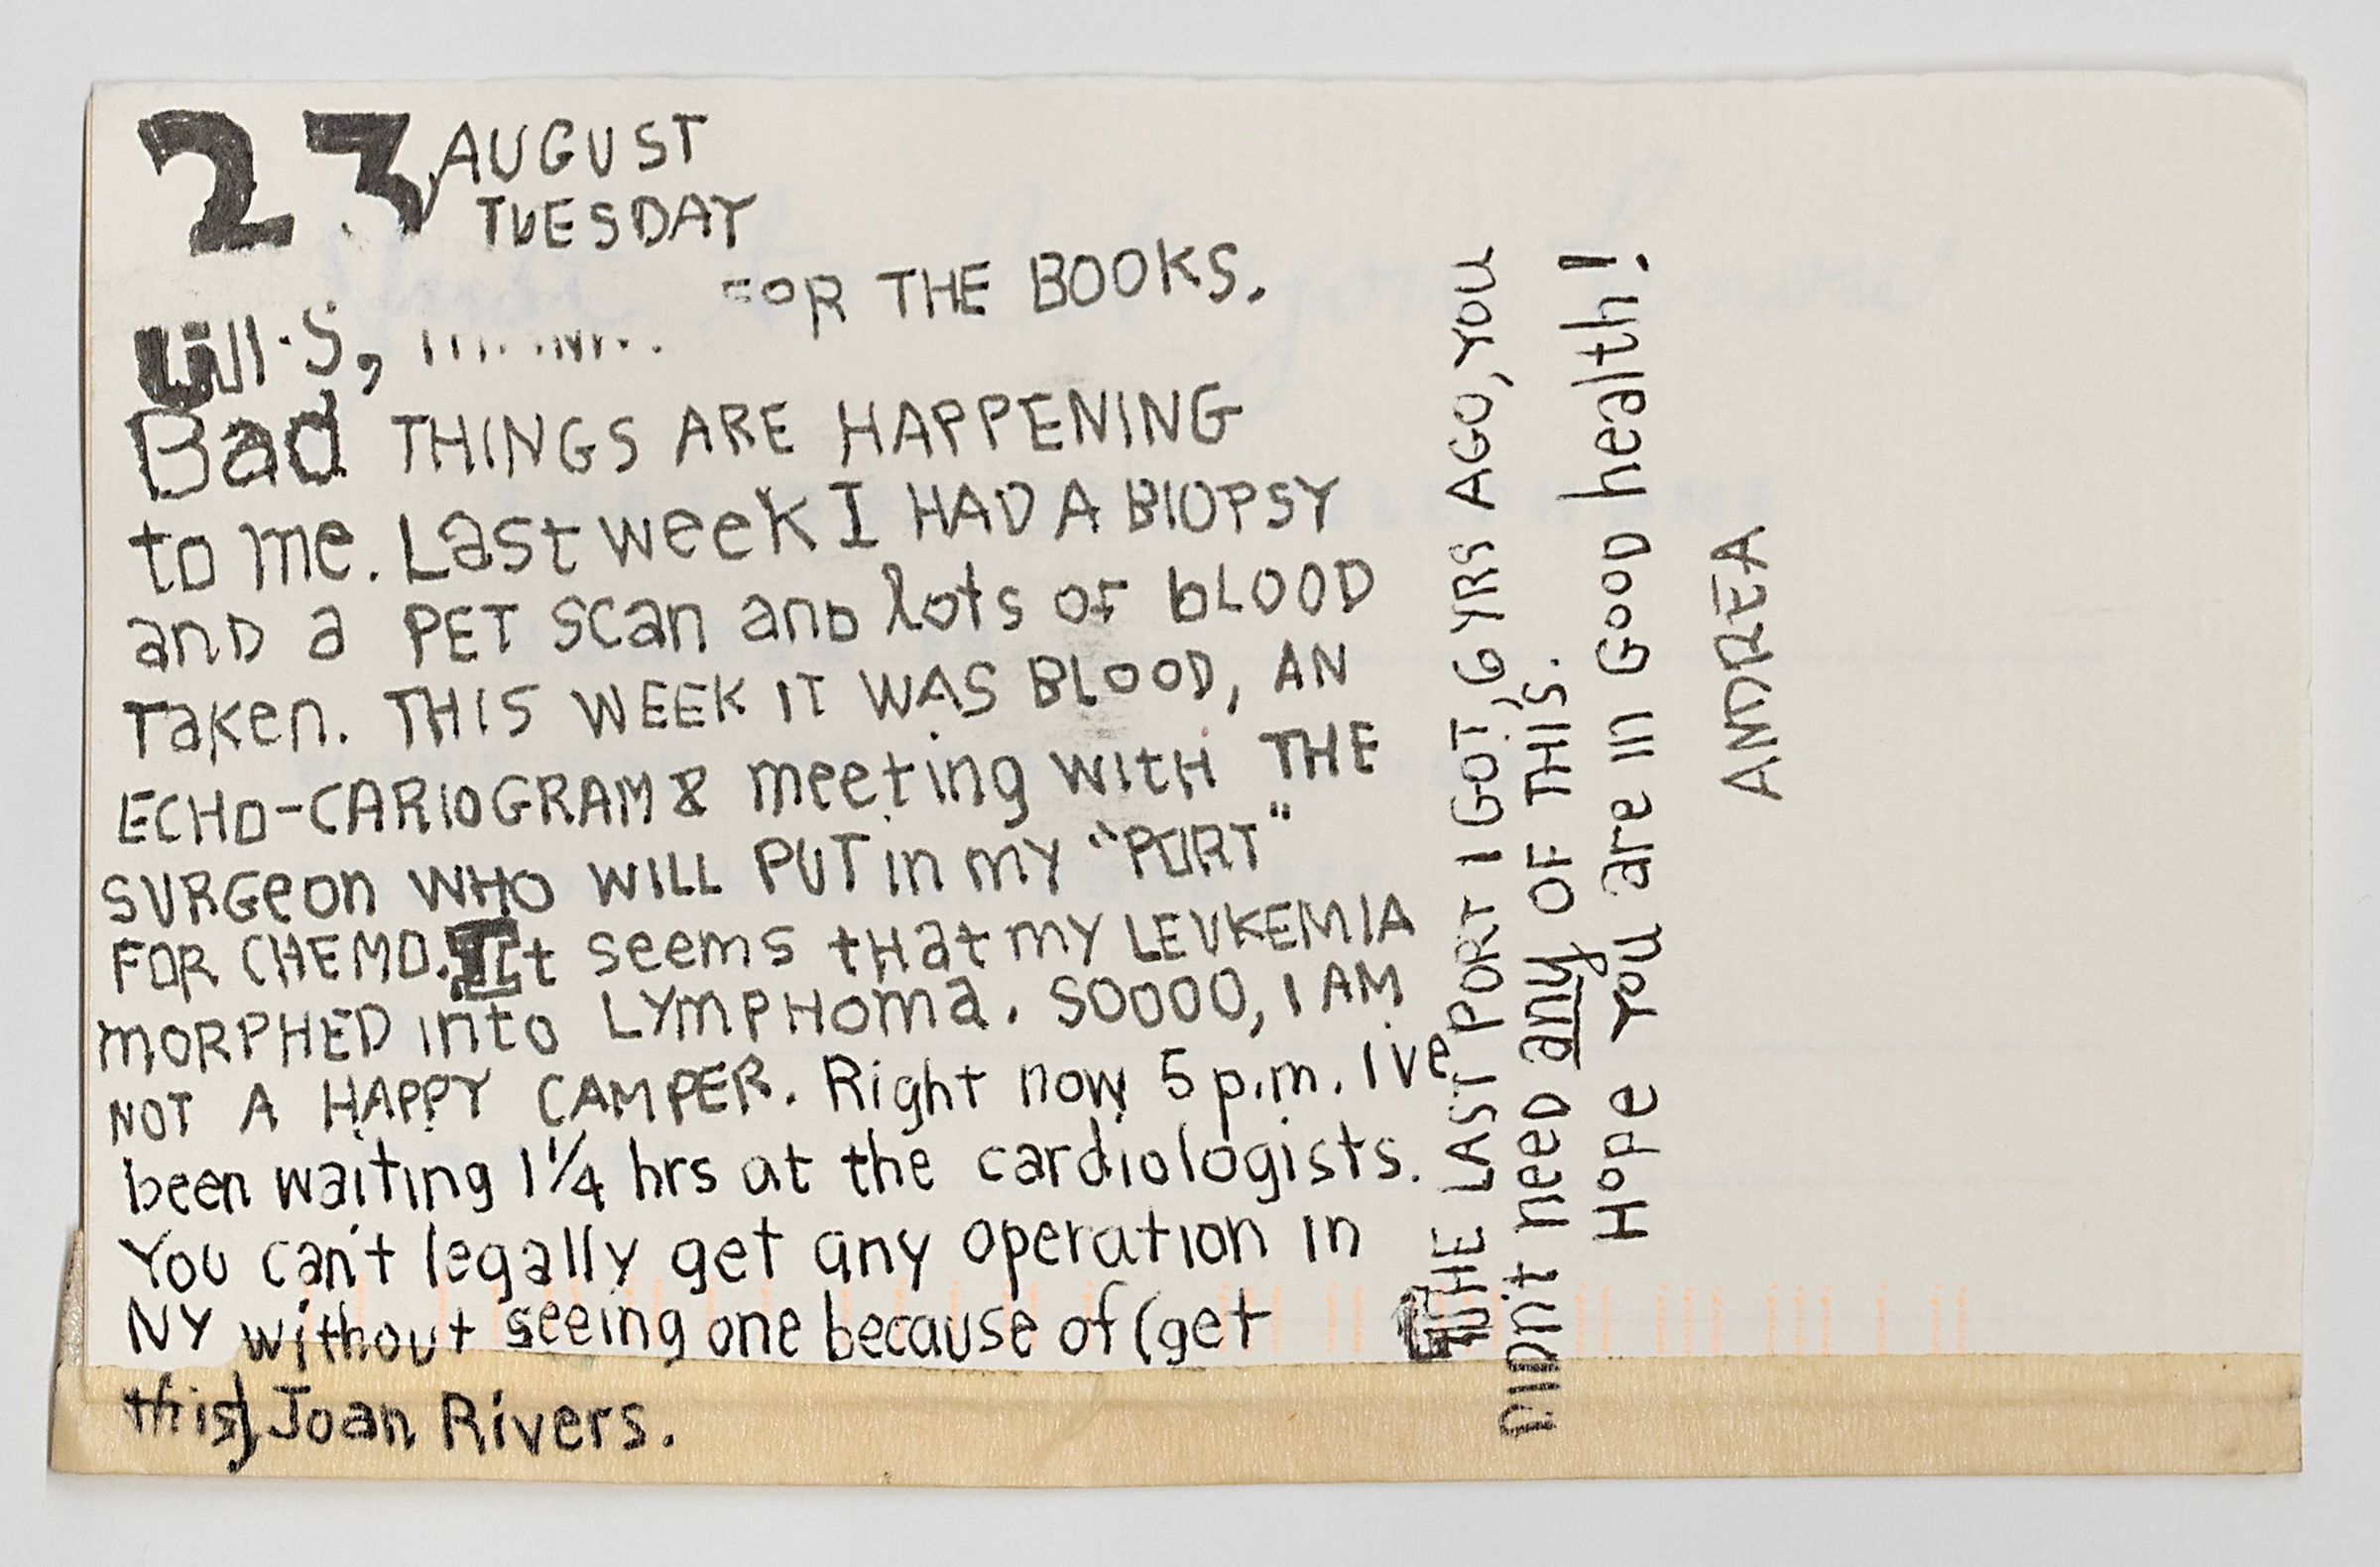 23 AUGUST
TUESDAY
FOR THE BOOKS.
Bad THINGS ARE HAPPENING
to me. Last week I HAD A BIOPSY
and a PET scan and lots of bLOOD
Taken. THIS WEEK IT WAS BLOOD, AN
ECHO-CARIOGRAM & meeting WITH THE
SURGeon WHO WILL PUT in my "PORT"
FOR CHEMO. It seems that my LEUKEMIA
MORPHED into LYMPHOMA. SOOOO, I AM
NOT A HAPPY CAMPER. Right now 5 p.m. I've
been waiting 1¼ hrs at the cardiologists.
You can't legally get any operation in
NY without seeing one because of (get
this) Joan Rivers.
THE LAST PORT I GOT, 6 YRS AGO, YOU
DIDn't need any OF THIS.
Hope You are in Good health!
ANDREA